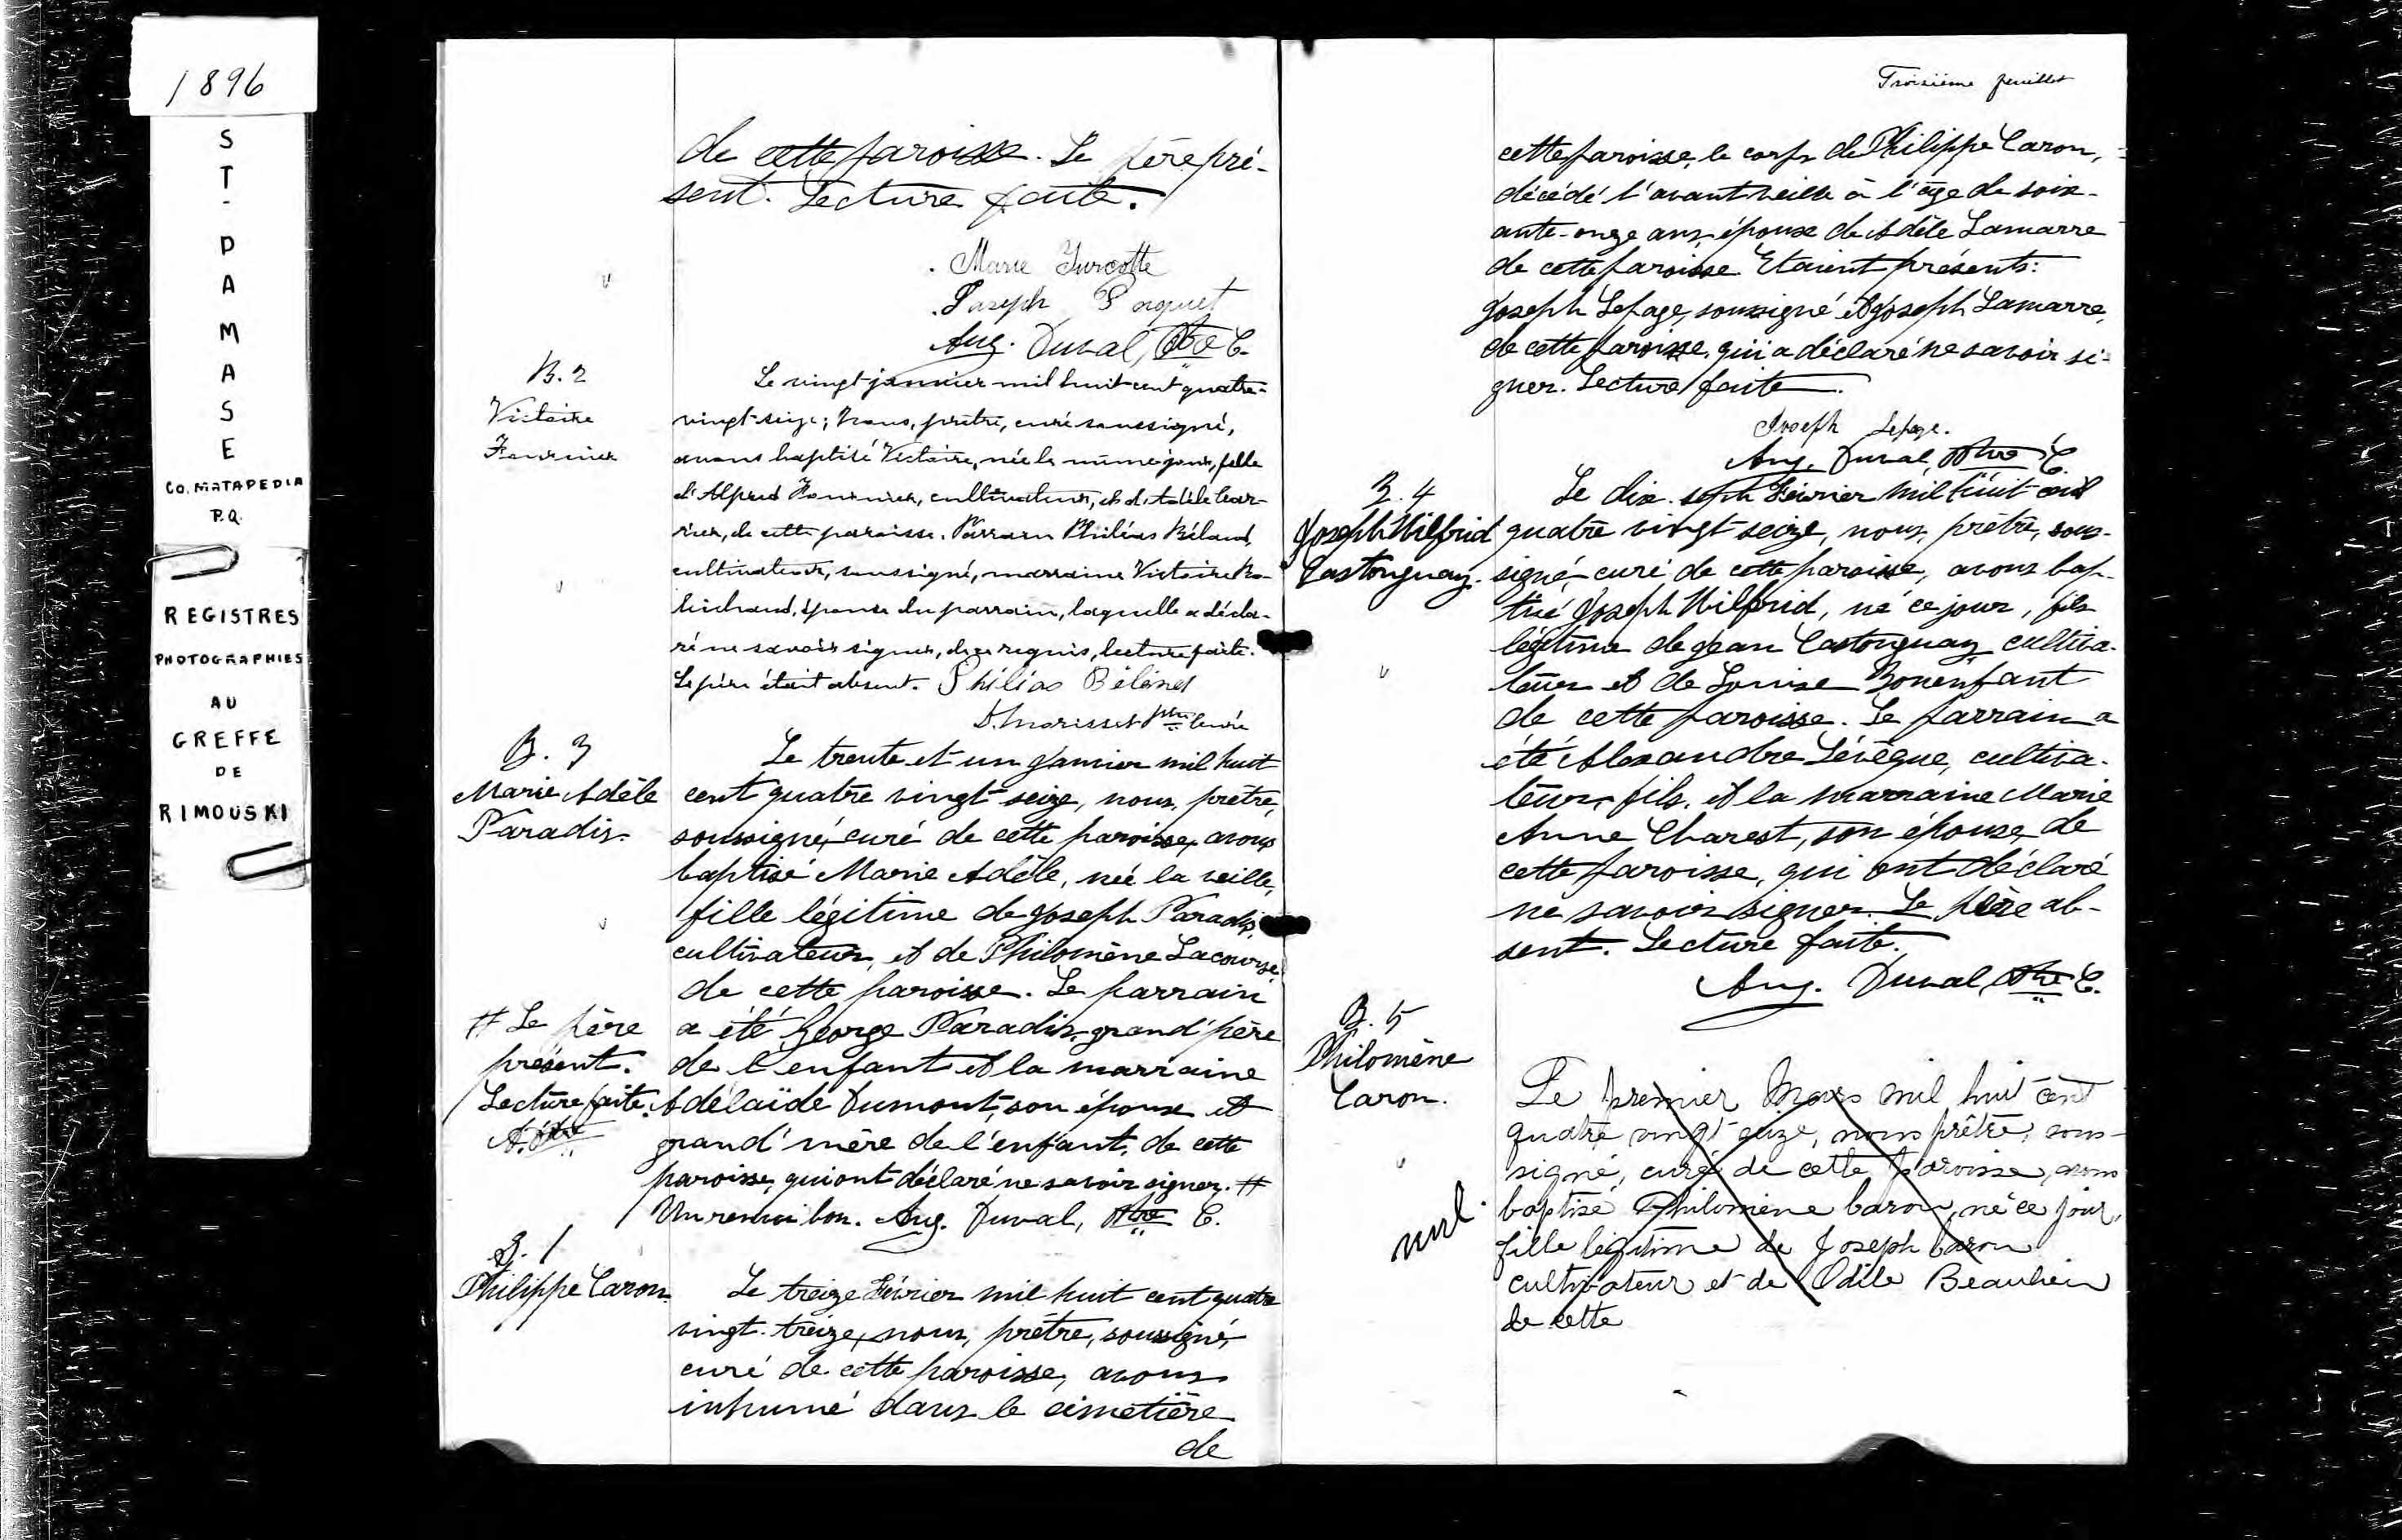 1896
ST-DAMASE
CO. MATAPEDIA
P.Q.
REGISTRES
PHOTOGRAPHIES
AU
GREFFE
DE
RIMOUSKI
de cette paroisse. Le père pré-
sent. Lecture faite.
Marie Turcotte
Joseph Paquet
Aug. Duval, Ptre C.
B. 2
Victoire
Fournier
Le vingt janvier mil huit cent quatre-
vingt-seize; Nous, prêtre, curé soussigné,
avons baptisé Victoire, née le même jour, fille
d'Alfred Fournier, cultivateur, et d'Adèle Car-
rier, de cette paroisse. Parrain Philéas Béland,
cultivateur, soussigné, marraine Victoire Ro-
bichaud, épouse du parrain, laquelle a décla-
ré ne savoir signer, de ce requis, lecture faite.
Le père était absent. Philias Béland
D. Morisset ptre curé
B. 3
Marie Adèle
Paradis.
Le trente et un Janvier mil huit
cent quatre vingt seize, nous, prêtre,
soussigné, curé de cette paroisse, avons
baptisé Marie Adèle, née la veille,
fille légitime de Joseph Paradis,
cultivateur, et de Philomène Lacourse
de cette paroisse. Le parrain
a été George Paradis, grand'père
de l'enfant et la marraine
Adélaïde Dumont, son épouse et
grand'mère de l'enfant, de cette
paroisse, qui ont déclaré ne savoir signer. #
Un renvoi bon. Aug. Duval, Ptre C.
# Le père
présent.
Lecture faite.
S. 1
Philippe Caron.
Le treize Février mil huit cent quatre
vingt-treize, nous, prêtre, soussigné,
curé de cette paroisse, avons
inhumé dans le cimetière
de
Troisième feuillet
cette paroisse, le corps de Philippe Caron,
décédé l'avant veille à l'âge de soix-
ante-onze ans, époux de Adèle Lamarre
de cette paroisse. Etaient présents:
Joseph Lepage, soussigné et Joseph Lamarre,
de cette paroisse, qui a déclaré ne savoir si-
gner. Lecture faite.
Joseph Lepage.
Aug. Duval, Ptre C.
B. 4
Joseph Wilfrid
Castonguay.
Le dix-sept Février mil huit cent
quatre vingt seize, nous, prêtre, sous-
signé, curé de cette paroisse, avons bap-
tisé Joseph Wilfrid, né ce jour, fils
légitime de Jean Castonguay, cultiva-
teur et de Louise Bonenfant
de cette paroisse. Le parrain a
été Alexandre Lévêque, cultiva-
teur, fils, et la marraine Marie
Anne Charest, son épouse, de
cette paroisse, qui ont déclaré
ne savoir signer. Le père ab-
sent. Lecture faite.
Aug. Duval, Ptre C.
B. 5
Philomène
Caron.
nul.
Le premier Mars mil huit cent
quatre vingt seize, nous prêtre, sous-
signé, curé de cette paroisse, avons
baptisé Philomène Caron, né ce jour,
fille légitime de Joseph Caron
cultivateur et de Odile Beaulieu
de cette